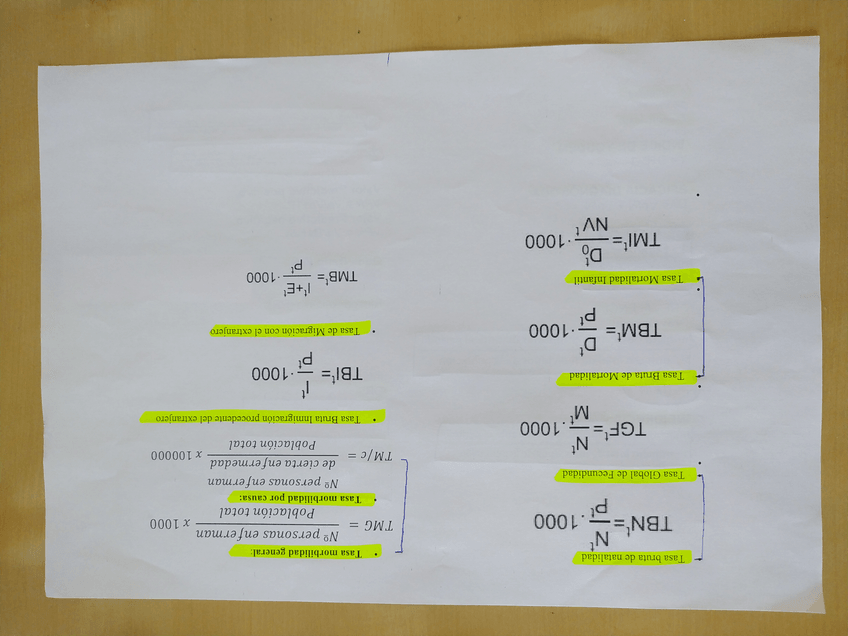 Tasa bruta de natalidad
TBNᵗ= Nᵗ/Pᵗ ·1000
Tasa Global de Fecundidad
TGFᵗ= Nᵗ/Mᵗ ·1000
Tasa Bruta de Mortalidad
TBMᵗ= Dᵗ/Pᵗ ·1000
Tasa Mortalidad Infantil
TMIᵗ= D₀ᵗ/NVᵗ ·1000
Tasa morbilidad general:
TMG = Nº personas enferman/Población total x 1000
Tasa morbilidad por causa:
Nº personas enferman
TM/c = de cierta enfermedad/Población total x 100000
Tasa Bruta Inmigración procedente del extranjero
TBIᵗ= Iᵗ/Pᵗ ·1000
Tasa de Migración con el extranjero
TMBᵗ= Iᵗ+Eᵗ/Pᵗ ·1000